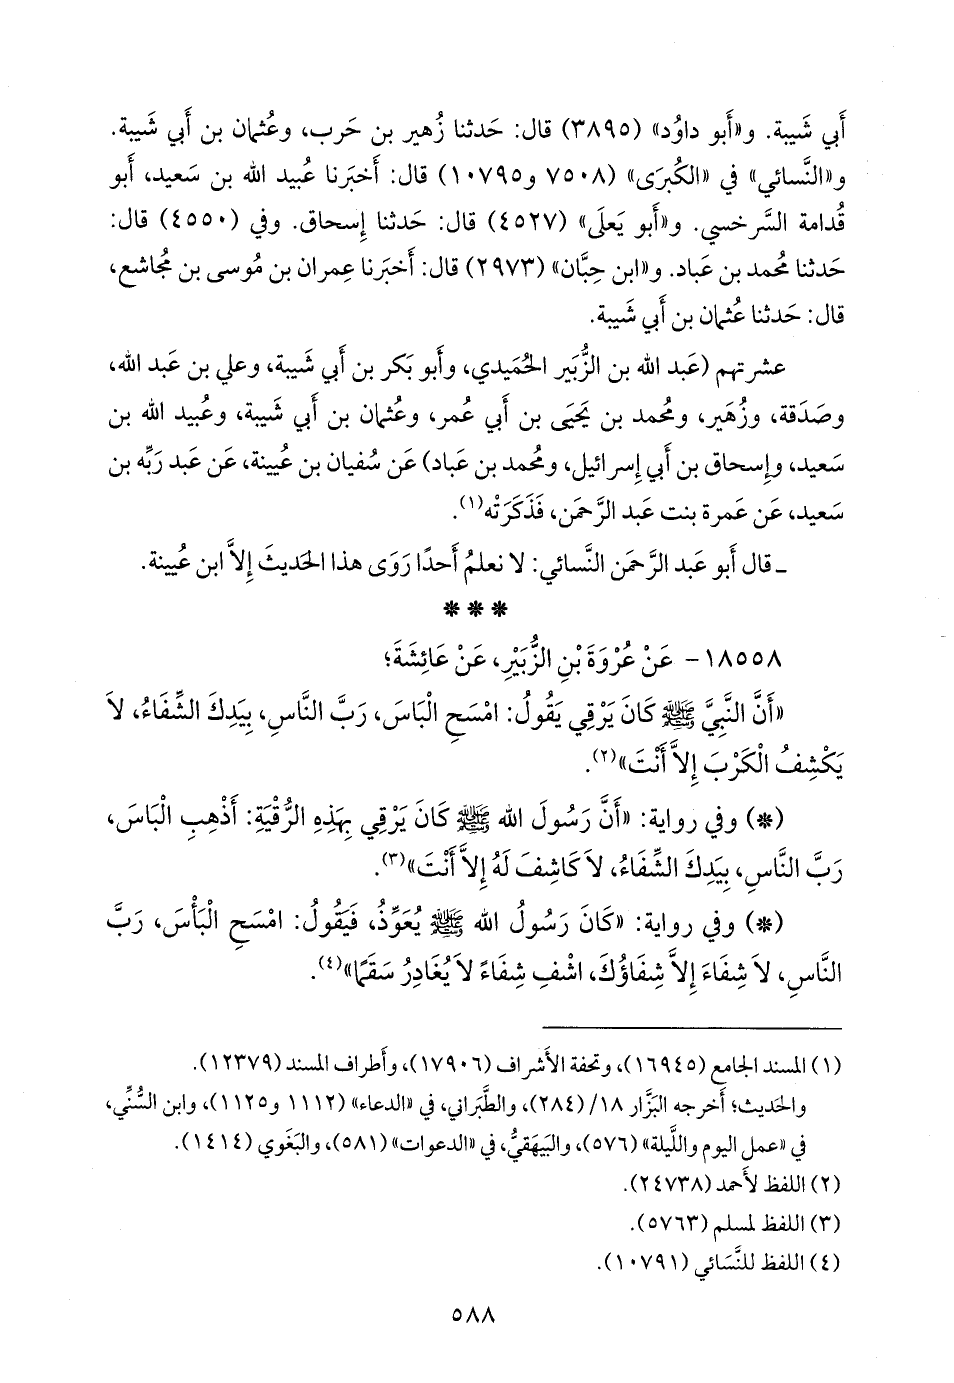 أَبي شَيبة. و«أَبو داوُد» (٣٨٩٥) قال: حَدثنا زُهير بن حَرب، وعُثمان بن أَبي شَيبة.
و«النَّسائي» في «الكُبرَى» (٧٥٠٨ و١٠٧٩٥) قال: أَخبَرنا عُبيد الله بن سَعيد، أَبو
قُدامة السَّرخسي. و«أَبو يَعلَى» (٤٥٢٧) قال: حَدثنا إِسحاق. وفي (٤٥٥٠) قال:
حَدثنا مُحمد بن عَباد. و«ابن حِبَّان» (٢٩٧٣) قال: أَخبَرنا عِمران بن مُوسى بن مُجاشع،
قال: حَدثنا عُثمان بن أَبي شَيبة.
عشرتهم (عَبد الله بن الزُّبَير الحُمَيدي، وأَبو بَكر بن أَبي شَيبة، وعلي بن عَبد الله،
وصَدَقة، وزُهَير، ومُحمد بن يَحيَى بن أَبي عُمر، وعُثمان بن أَبي شَيبة، وعُبيد الله بن
سَعيد، وإِسحاق بن أَبي إِسرائيل، ومُحمد بن عَباد) عَن سُفيان بن عُيينة، عَن عَبد رَبِّه بن
سَعيد، عَن عَمرة بنت عَبد الرَّحمَن، فَذَكَرَتْه(١).
ـ قال أَبو عَبد الرَّحمَن النَّسائي: لا نعلمُ أَحدًا رَوَى هذا الحَديثَ إِلاَّ ابن عُيينة.
* * *
١٨٥٥٨- عَنْ عُرْوَةَ بْنِ الزُّبَيْرِ، عَنْ عَائِشَةَ؛
«أَنَّ النَّبِيَّ ﷺ كَانَ يَرْقِي يَقُولُ: امْسَحِ الْبَاسَ، رَبَّ النَّاسِ، بِيَدِكَ الشِّفَاءُ، لاَ
يَكْشِفُ الْكَرْبَ إِلاَّ أَنْتَ»(٢).
(*) وفي رواية: «أَنَّ رَسُولَ الله ﷺ كَانَ يَرْقِي بِهَذِهِ الرُّقْيَةِ: أَذْهِبِ الْبَاسَ،
رَبَّ النَّاسِ، بِيَدِكَ الشِّفَاءُ، لاَ كَاشِفَ لَهُ إِلاَّ أَنْتَ»(٣).
(*) وفي رواية: «كَانَ رَسُولُ الله ﷺ يُعَوِّذُ، فَيَقُولُ: امْسَحِ الْبَأْسَ، رَبَّ
النَّاسِ، لاَ شِفَاءَ إِلاَّ شِفَاؤُكَ، اشْفِ شِفَاءً لاَ يُغَادِرُ سَقَمًا»(٤).
(١) المسند الجامع (١٦٩٤٥)، وتحفة الأشراف (١٧٩٠٦)، وأَطراف المسند (١٢٣٧٩).
والحَديث؛ أَخرجه البَزَّار ١٨/ (٢٨٤)، والطَّبَراني، في «الدعاء» (١١١٢ و١١٢٥)، وابن السُّنِّي،
في «عمل اليوم واللَّيلة» (٥٧٦)، والبَيهَقيُّ، في «الدعوات» (٥٨١)، والبَغَوي (١٤١٤).
(٢) اللفظ لأحمد (٢٤٧٣٨).
(٣) اللفظ لمسلم (٥٧٦٣).
(٤) اللفظ للنَّسَائي (١٠٧٩١).
٥٨٨